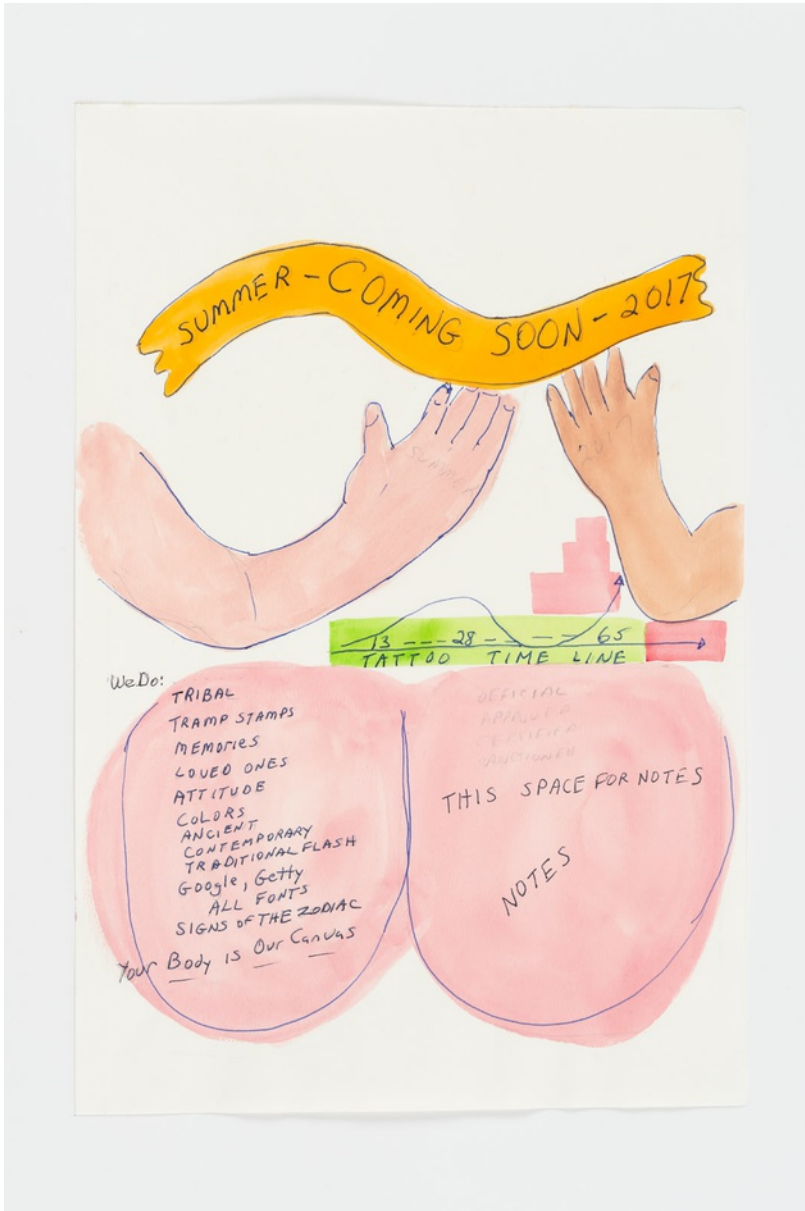 SUMMER - COMING SOON - 2017
SUMMER
2017
13 --- 28 - - - 65
TATTOO TIME LINE
We Do:
TRIBAL
TRAMP STAMPS
MEMORIES
LOVED ONES
ATTITUDE
COLORS
ANCIENT
CONTEMPORARY
TRADITIONAL FLASH
Google, Getty
ALL FONTS
SIGNS OF THE ZODIAC
Your Body is Our Canvas
OFFICIAL
APPROVED
CERTIFIED
SANCTIONED
THIS SPACE FOR NOTES
NOTES